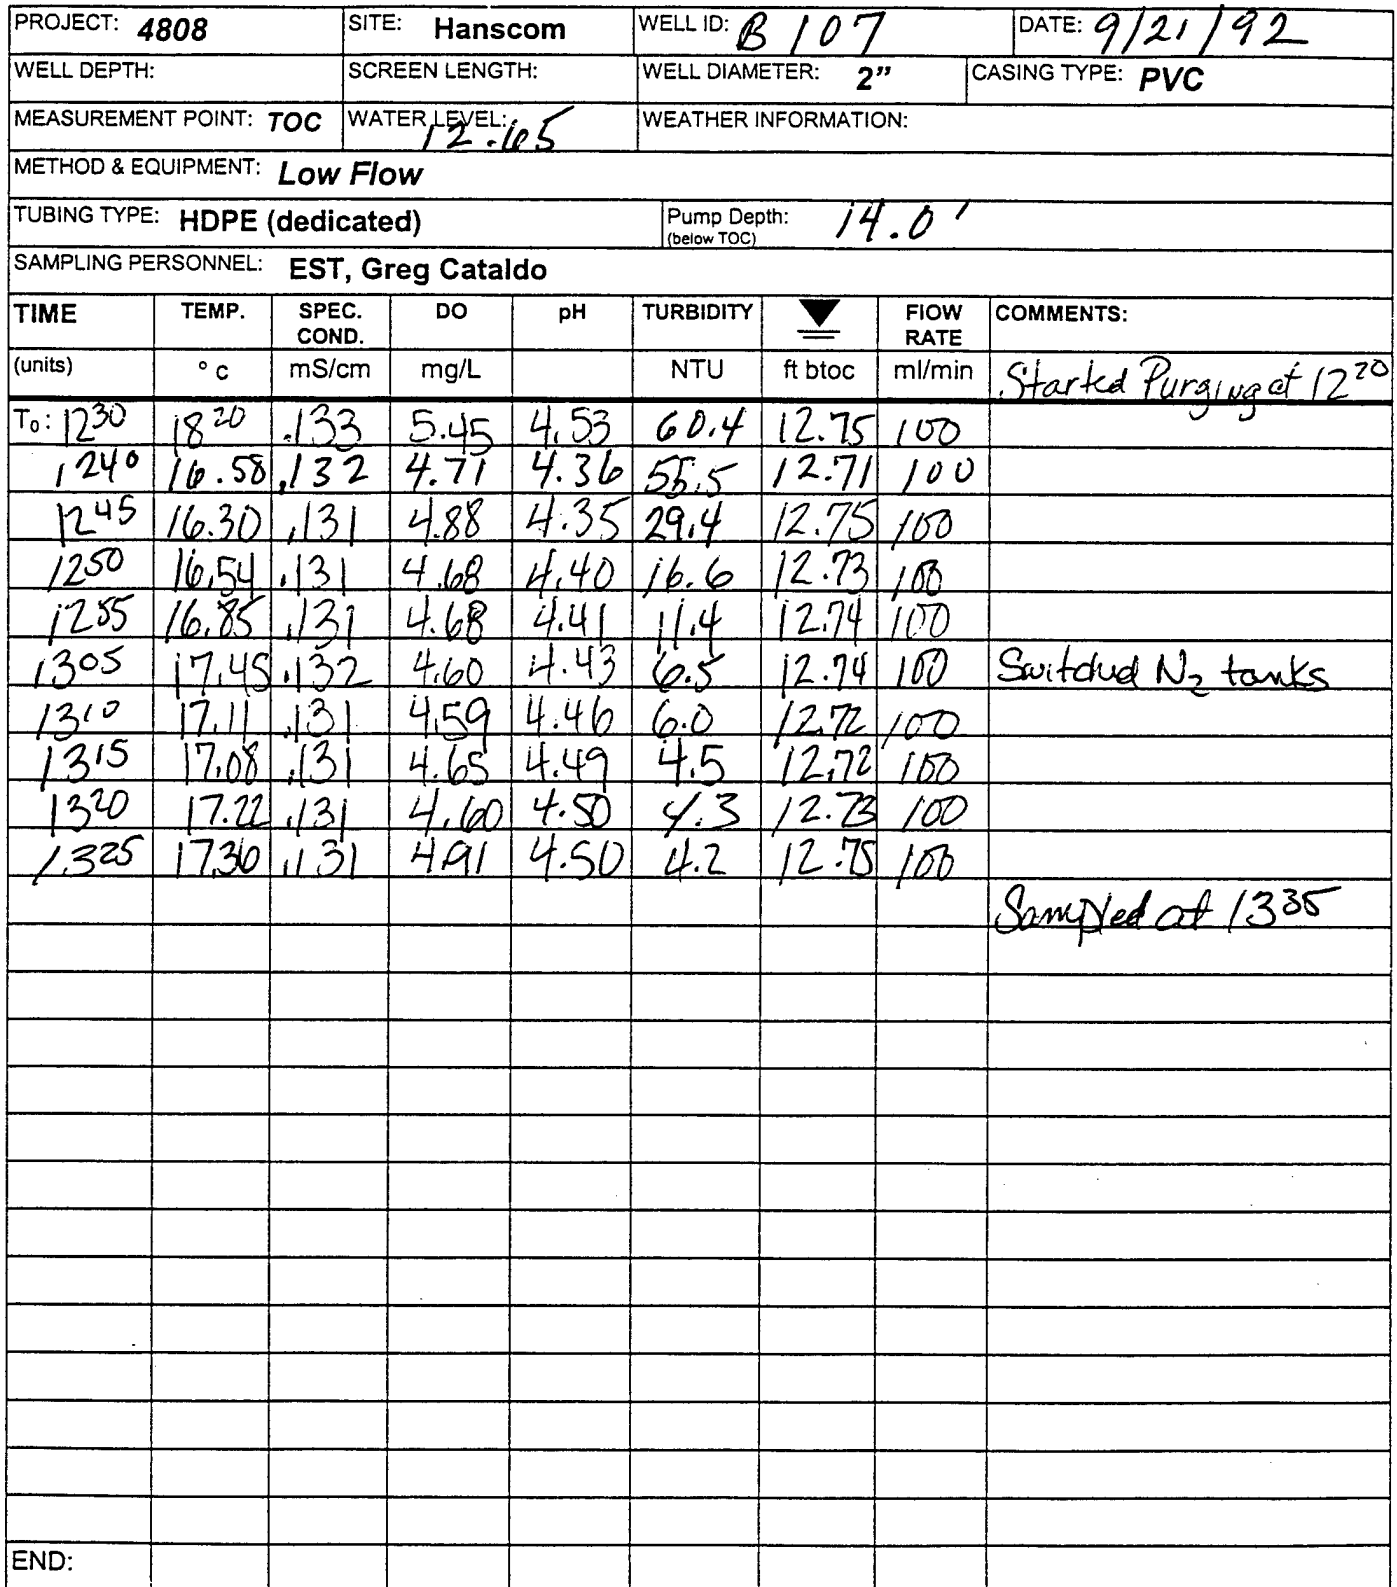 PROJECT: 4808 SITE: Hanscom WELL ID: B 107 DATE: 9/21/92
WELL DEPTH: SCREEN LENGTH: WELL DIAMETER: 2" CASING TYPE: PVC
MEASUREMENT POINT: TOC WATER LEVEL: 12.65 WEATHER INFORMATION:
METHOD & EQUIPMENT: Low Flow
TUBING TYPE: HDPE (dedicated) Pump Depth: 14.0'
(below TOC)
SAMPLING PERSONNEL: EST, Greg Cataldo
TIME TEMP. SPEC. DO pH TURBIDITY FlOW COMMENTS:
COND. RATE
(units) ° c mS/cm mg/L NTU ft btoc ml/min Started Purging at 1220
To: 1230 18 20 .133 5.45 4.53 60.4 12.75 100
1240 16.58 .132 4.71 4.36 55.5 12.71 100
1245 16.30 .131 4.88 4.35 29.4 12.75 100
1250 16.54 .131 4.68 4.40 16.6 12.73 100
1255 16.85 .131 4.68 4.41 11.4 12.74 100
1305 17.45 .132 4.60 4.43 6.5 12.74 100 Switched N2 tanks
1310 17.11 .131 4.59 4.46 6.0 12.72 100
1315 17.08 .131 4.65 4.49 4.5 12.72 100
1320 17.22 .131 4.60 4.50 4.3 12.73 100
1325 17.36 .131 4.91 4.50 4.2 12.75 100
Sampled at 1335
END: